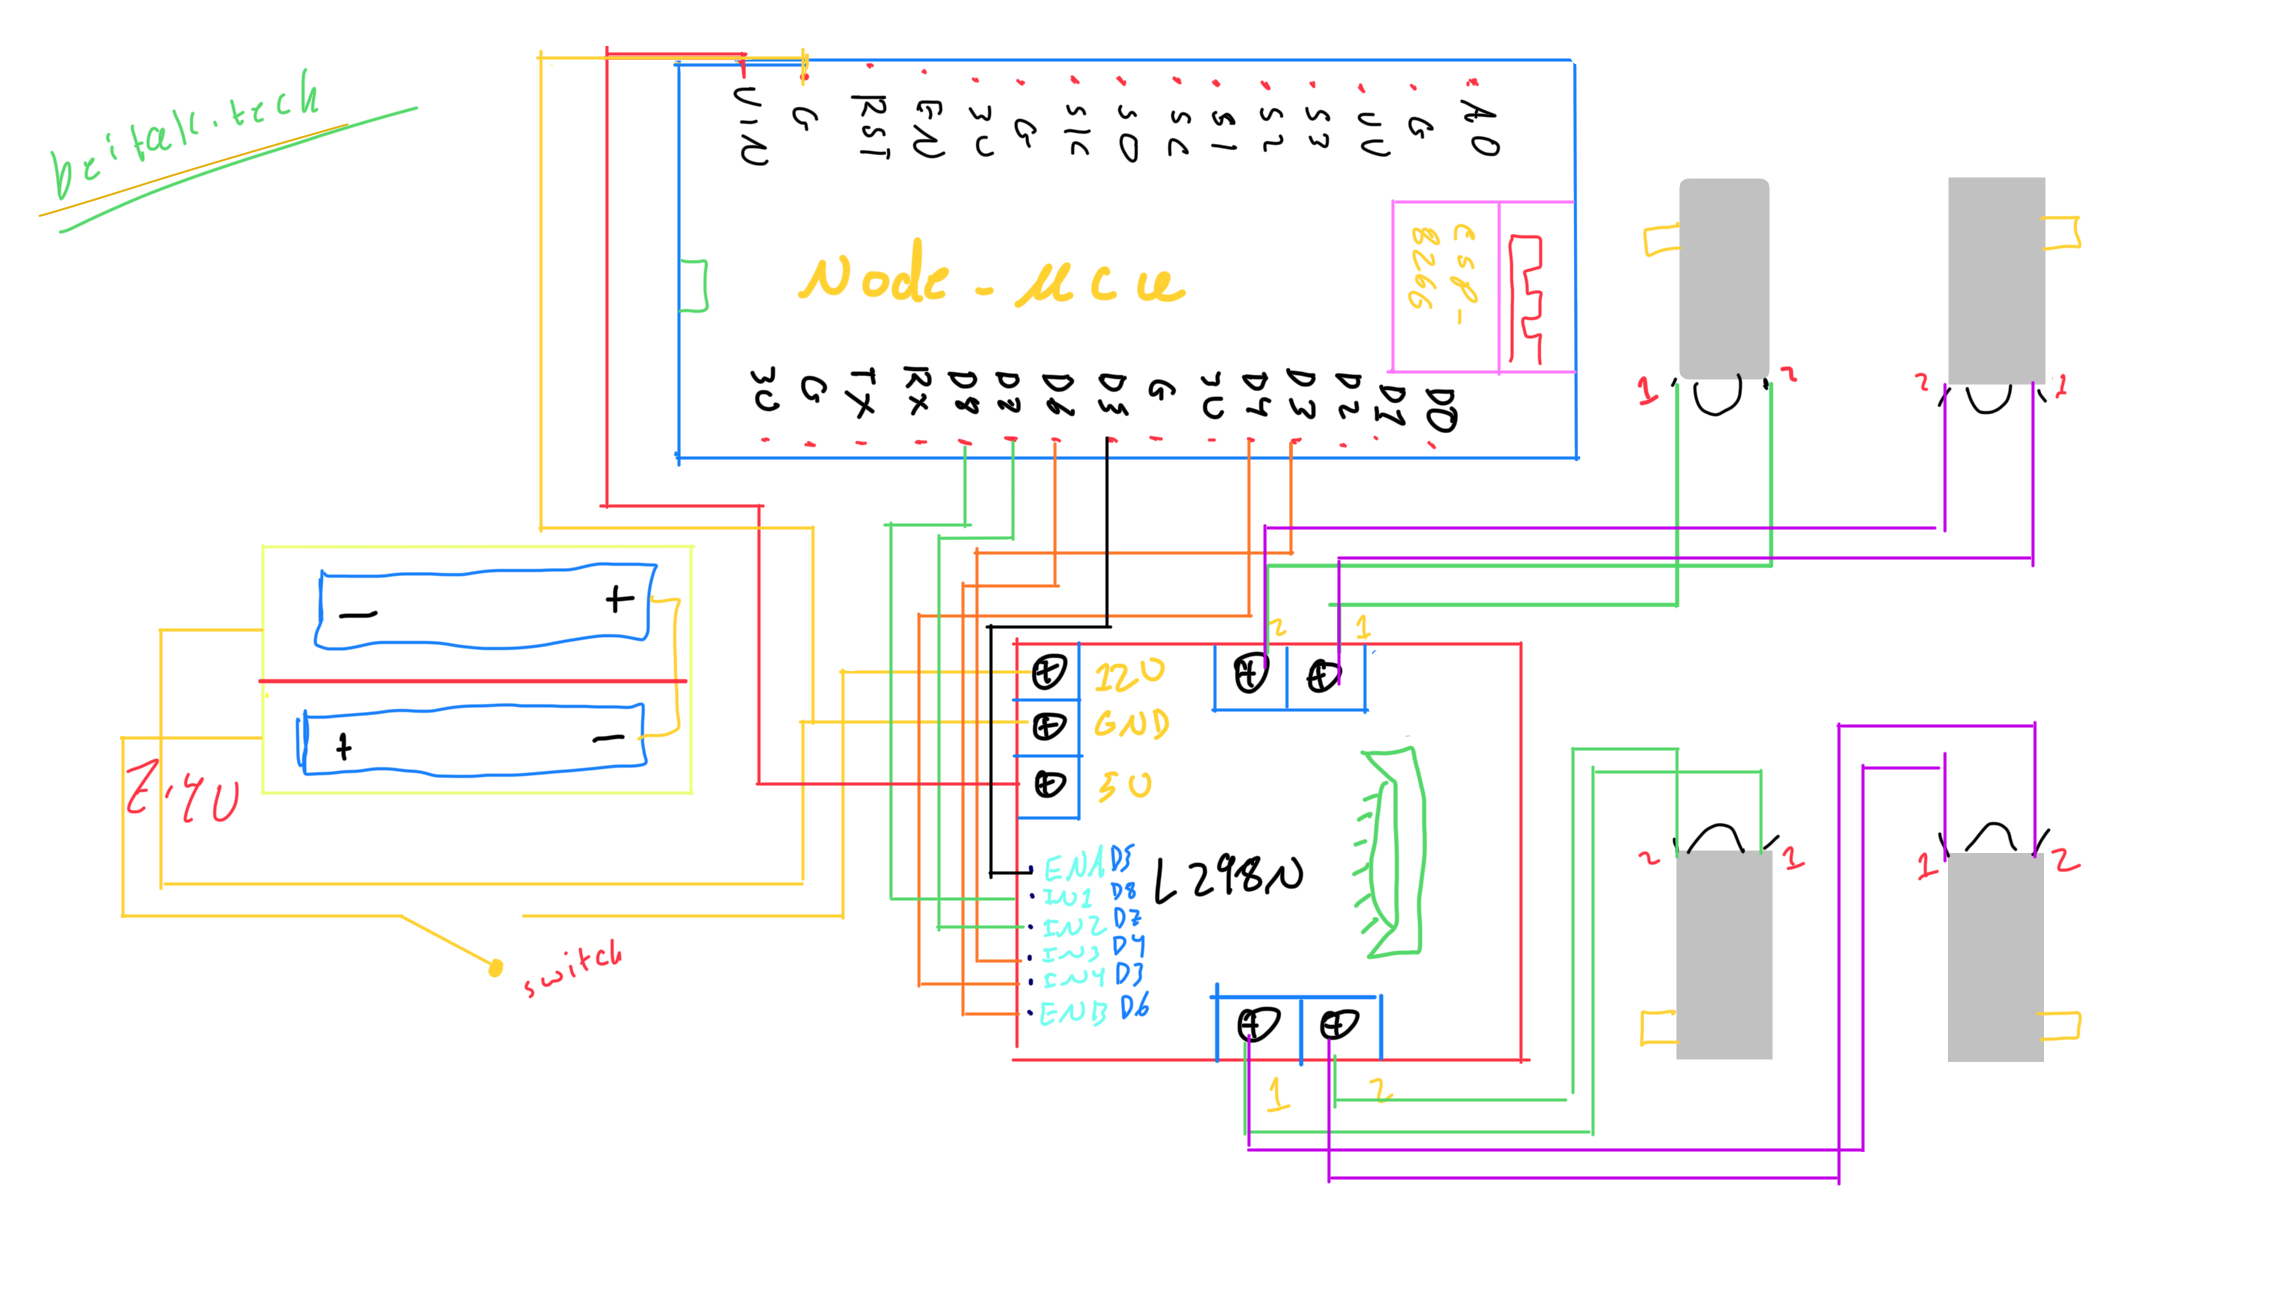 britalk.tech
VIN G RST EN 3V G SIC SO SC S1 S2 S3 VV G A0
Node-MCU
ESP-
8266
3V G TX RX D8 D7 D6 D5 G 3V D4 D3 D2 D1 D0
1 2
2 1
- +
+ -
7.4V
switch
2 1
12V
GND
5V
ENA D5
IN1 D8
IN2 D7
IN3 D4
IN4 D3
ENB D6
L298N
1 2
2 1
1 2